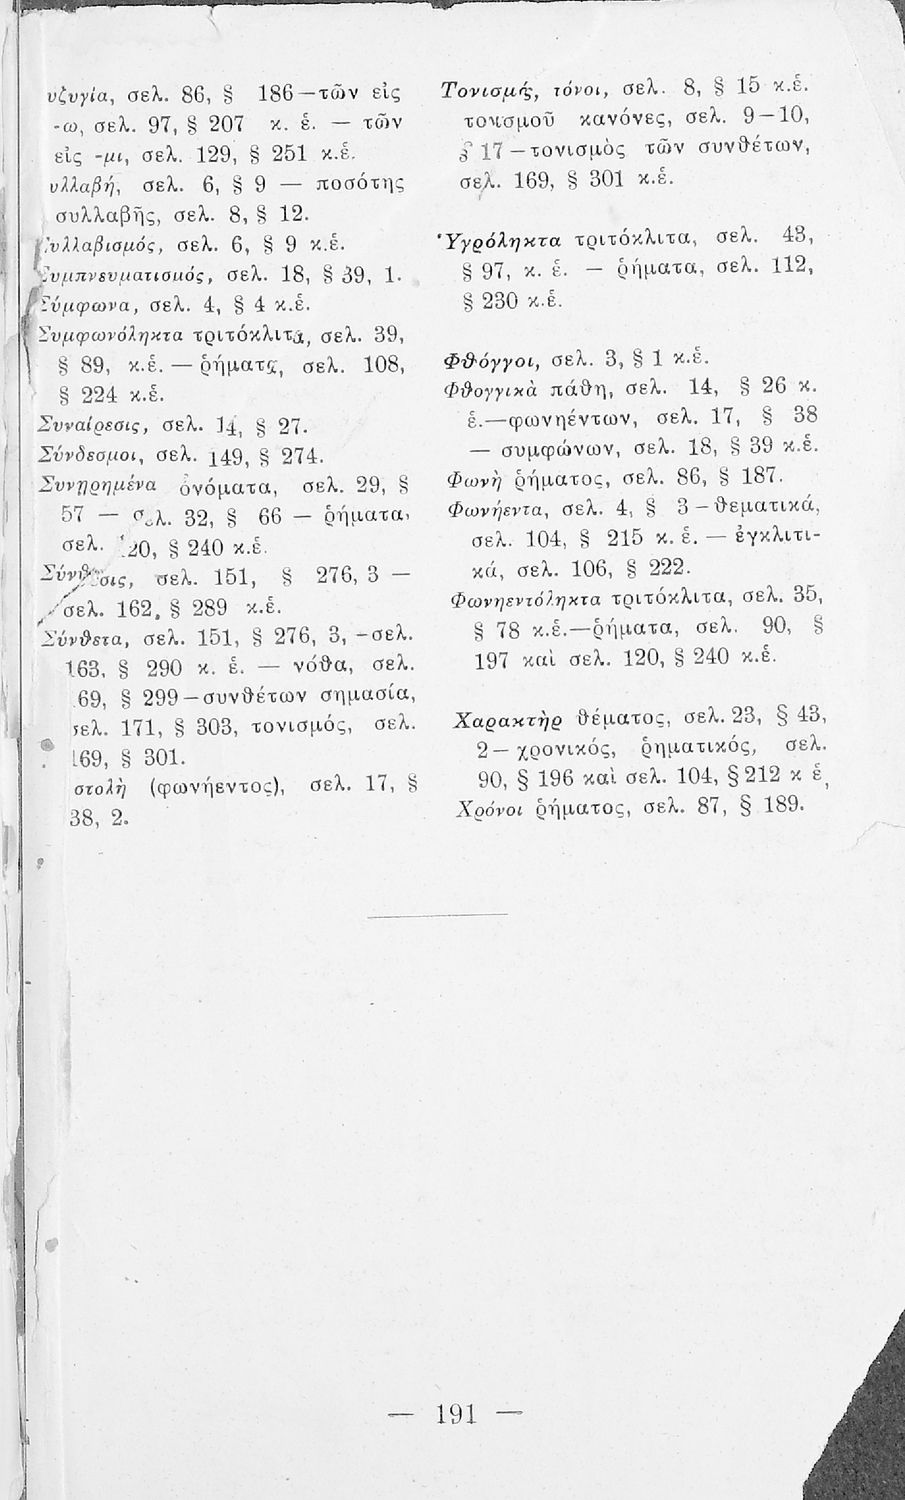 υζυγία, σελ. 86, § 186—τῶν εἰς
-ω, σελ. 97, § 207 κ. ἑ. — τῶν
εἰς -μι, σελ. 129, § 251 κ.ἑ.
υλλαβή, σελ. 6, § 9 — ποσότης
συλλαβῆς, σελ. 8, § 12.
υλλαβισμός, σελ. 6, § 9 κ.ἑ.
υμπνευματισμός, σελ. 18, § 39, 1.
Σύμφωνα, σελ. 4, § 4 κ.ἑ.
Συμφωνόληκτα τριτόκλιτα, σελ. 39,
§ 89, κ.ἑ. — ῥήματα, σελ. 108,
§ 224 κ.ἑ.
Συναίρεσις, σελ. 14, § 27.
Σύνδεσμοι, σελ. 149, § 274.
Συνηρημένα ὀνόματα, σελ. 29, §
57 — σελ. 32, § 66 — ῥήματα,
σελ. 120, § 240 κ.ἑ.
Σύνθεσις, σελ. 151, § 276, 3 —
σελ. 162, § 289 κ.ἑ.
Σύνθετα, σελ. 151, § 276, 3, —σελ.
163, § 290 κ. ἑ. — νόθα, σελ.
69, § 299—συνθέτων σημασία,
σελ. 171, § 303, τονισμός, σελ.
169, § 301.
στολὴ (φωνήεντος), σελ. 17, §
38, 2.
Τονισμός, τόνοι, σελ. 8, § 15 κ.ἑ.
τονισμοῦ κανόνες, σελ. 9—10,
§ 17—τονισμὸς τῶν συνθέτων,
σελ. 169, § 301 κ.ἑ.
Ὑγρόληκτα τριτόκλιτα, σελ. 43,
§ 97, κ. ἑ. — ῥήματα, σελ. 112,
§ 230 κ.ἑ.
Φθόγγοι, σελ. 3, § 1 κ.ἑ.
Φθογγικὰ πάθη, σελ. 14, § 26 κ.
ἑ.—φωνηέντων, σελ. 17, § 38
— συμφώνων, σελ. 18, § 39 κ.ἑ.
Φωνὴ ῥήματος, σελ. 86, § 187.
Φωνήεντα, σελ. 4, § 3—θεματικά,
σελ. 104, § 215 κ. ἑ. — ἐγκλιτι-
κά, σελ. 106, § 222.
Φωνηεντόληκτα τριτόκλιτα, σελ. 35,
§ 78 κ.ἑ.—ῥήματα, σελ. 90, §
197 καὶ σελ. 120, § 240 κ.ἑ.
Χαρακτὴρ θέματος, σελ. 23, § 43,
2— χρονικός, ῥηματικός, σελ.
90, § 196 καὶ σελ. 104, § 212 κ ἑ,
Χρόνοι ῥήματος, σελ. 87, § 189.
— 191 —